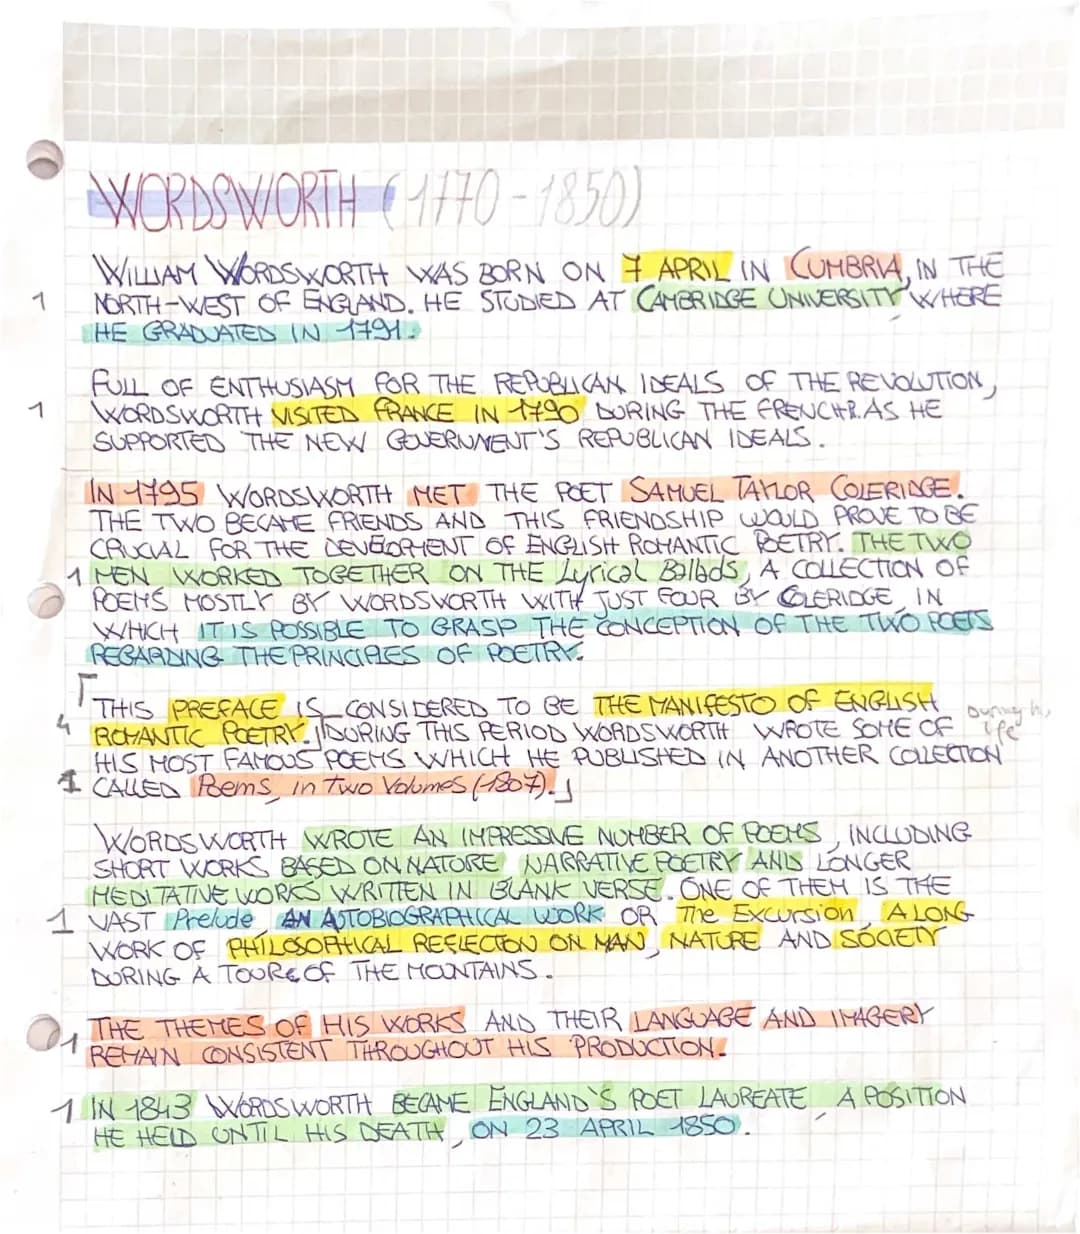 WORDSWORTH (1770-1850)
WILLIAM WORDSWORTH WAS BORN ON 7 APRIL IN CUMBRIA, IN THE
1 NORTH-WEST OF ENGLAND. HE STUDIED AT CAMBRIDGE UNIVERSITY, WHERE
HE GRADUATED IN 1791.
FULL OF ENTHUSIASM FOR THE REPUBLICAN IDEALS OF THE REVOLUTION,
1 WORDSWORTH VISITED FRANCE IN 1790 DURING THE FRENCH R. AS HE
SUPPORTED THE NEW GOVERNMENT'S REPUBLICAN IDEALS.
IN 1795 WORDSWORTH MET THE POET SAMUEL TAYLOR COLERIDGE.
THE TWO BECAME FRIENDS AND THIS FRIENDSHIP WOULD PROVE TO BE
CRUCIAL FOR THE DEVELOPMENT OF ENGLISH ROMANTIC POETRY. THE TWO
1 MEN WORKED TOGETHER ON THE Lyrical Ballads, A COLLECTION OF
POEMS MOSTLY BY WORDSWORTH WITH JUST FOUR BY COLERIDGE, IN
WHICH IT IS POSSIBLE TO GRASP THE CONCEPTION OF THE TWO POETS
REGARDING THE PRINCIPLES OF POETRY.
THIS PREFACE IS CONSIDERED TO BE THE MANIFESTO OF ENGLISH
4 ROMANTIC POETRY. DURING THIS PERIOD WORDSWORTH WROTE SOME OF During
HIS MOST FAMOUS POEMS WHICH HE PUBLISHED IN ANOTHER COLLECTION
1 CALLED Poems, in Two Volumes (1807).
WORDSWORTH WROTE AN IMPRESSIVE NUMBER OF POEMS, INCLUDING
SHORT WORKS BASED ON NATURE, NARRATIVE POETRY AND LONGER
MEDITATIVE WORKS WRITTEN IN BLANK VERSE. ONE OF THEM IS THE
1 VAST Prelude, AN AUTOBIOGRAPHICAL WORK OR The Excursion, A LONG
WORK OF PHILOSOPHICAL REFLECTION ON MAN, NATURE AND SOCIETY
DURING A TOUR OF THE MOUNTAINS.
THE THEMES OF HIS WORKS AND THEIR LANGUAGE AND IMAGERY
1 REMAIN CONSISTENT THROUGHOUT HIS PRODUCTION.
1 IN 1843 WORDSWORTH BECAME ENGLAND'S POET LAUREATE, A POSITION
HE HELD UNTIL HIS DEATH, ON 23 APRIL 1850.